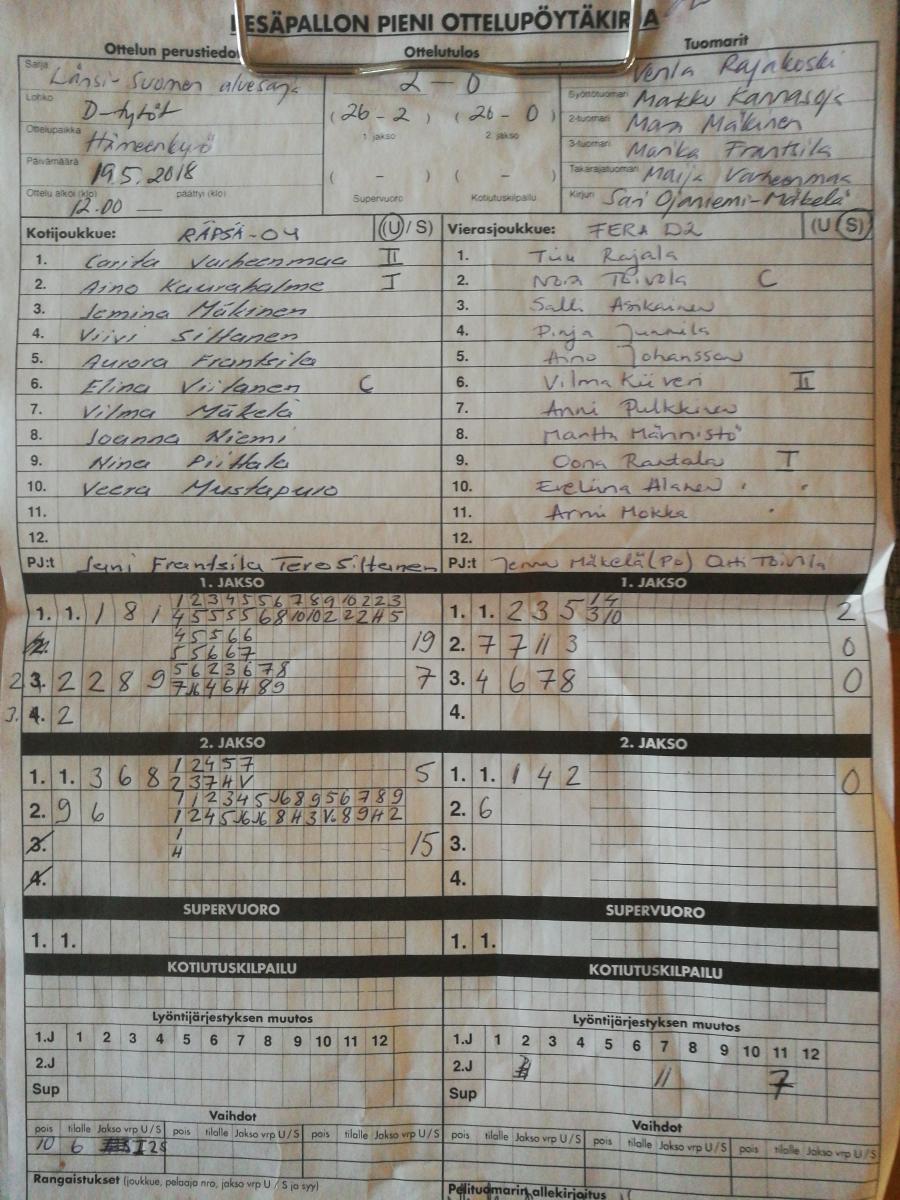 PESÄPALLON PIENI OTTELUPÖYTÄKIRJA
Ottelun perustiedot
Ottelutulos
Tuomarit
Sarja Länsi-Suomen aluesarja
2 - 0
Venla Rajakoski
Lohko D-tytöt
(26 - 2) (26 - 0)
1. jakso 2. jakso
Syöttötuomari Markku Karrasoja
2-tuomari Mäkinen
Ottelupaikka Hämeenkyrö
3-tuomari Marika Frantsila
Päivämäärä 19.5.2018
( - ) ( - )
Takarajatuomari Maija Varheenmaa
Ottelu alkoi (klo) päättyi (klo)
12.00 —
Supervuoro Kotiutuskilpailu
Kirjuri Sari Ojaniemi-Mäkelä
Kotijoukkue: RÄPSÄ-04 (U/S)
1. Carita Varheenmaa II
2. Aino Kaurahalme I
3. Jemina Mäkinen
4. Viivi Siltanen
5. Aurora Frantsila
6. Elina Viitanen C
7. Vilma Mäkelä
8. Joanna Niemi
9. Nina Piittala
10. Veera Mustapuro
11.
12.
PJ:t Jani Frantsila Tero Siltanen
Vierasjoukkue: FERA D2 (U/S)
1. Tiiu Rajala
2. Noora Toivola C
3. Salli Asikainen
4. Pinja Junnila
5. Aino Johansson
6. Vilma Kiiveri II
7. Anni Pulkkinen
8. Martta Männistö
9. Oona Rantala I
10. Eveliina Alanen
11. Armi Mokka
12.
PJ:t Jenna Mäkelä (Po) Outi Toivola
1. JAKSO
1 2 3 4 5 5 6 7 8 9 10 2 2 3
1. 1. 1 8 1 4 5 5 5 5 6 8 10 10 2 2 2 H 5
4 5 5 6 6
2. 5 5 6 6 7 19
5 6 2 3 6 7 8
2. 3. 2 2 8 9 7 J6 4 6 H 8 9 7
3. 4. 2
1. JAKSO
1 4
1. 1. 2 3 5 3 10 2
2. 7 7 11 3 0
3. 4 6 7 8 0
4.
2. JAKSO
1 2 4 5 7
1. 1. 3 6 8 2 3 7 H V 5
1 1 2 3 4 5 J6 8 9 5 6 7 8 9
2. 9 6 1 2 4 5 J6 J6 8 H 3 V. 8 9 H 2
1
3. H 15
4.
2. JAKSO
1. 1. 1 4 2 0
2. 6
3.
4.
SUPERVUORO
1. 1.
SUPERVUORO
1. 1.
KOTIUTUSKILPAILU
KOTIUTUSKILPAILU
Lyöntijärjestyksen muutos
1.J 1 2 3 4 5 6 7 8 9 10 11 12
2.J
Sup
Lyöntijärjestyksen muutos
1.J 1 2 3 4 5 6 7 8 9 10 11 12
2.J 11 7
Sup
Vaihdot
pois tilalle Jakso vrp U/S pois tilalle Jakso vrp U/S pois tilalle Jakso vrp U/S
10 6 I 2S
Vaihdot
pois tilalle Jakso vrp U/S pois tilalle Jakso vrp U/S pois tilalle Jakso vrp U/S
Rangaistukset (joukkue, pelaaja nro, jakso vrp U / S ja syy)
Pelituomarin allekirjoitus